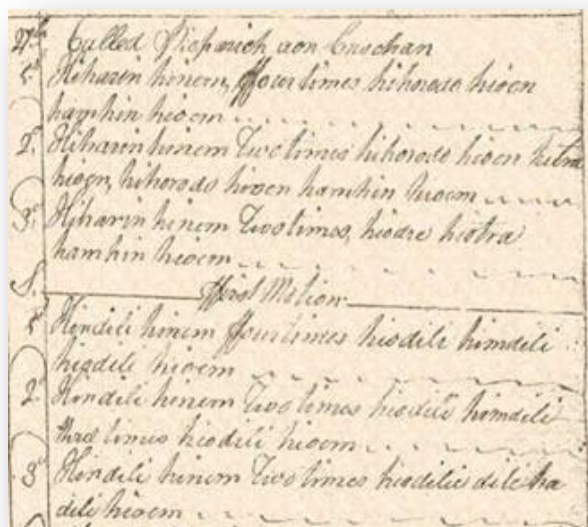 27th Called Piobarich aon Cnochan
1st Hiharin hinem, ffour times hihorodo hioen
hamhin hioem
2d Hiharin hinem Two times hihorodo hioen hiotra
hioen, hihorodo hioen hamhin hioem
3d Hiharin hinem Two times, hiodre hiotra
hamhin hioem
S. ffirst Motion
1st Hindili hinem ffour times hiodili himdili
hiodili hioem
2d Hindili hinem Two times hiodili himdili
three times hiodili hioem
3d Hindili hinem Two times hiodilie dili ha
dili hioem